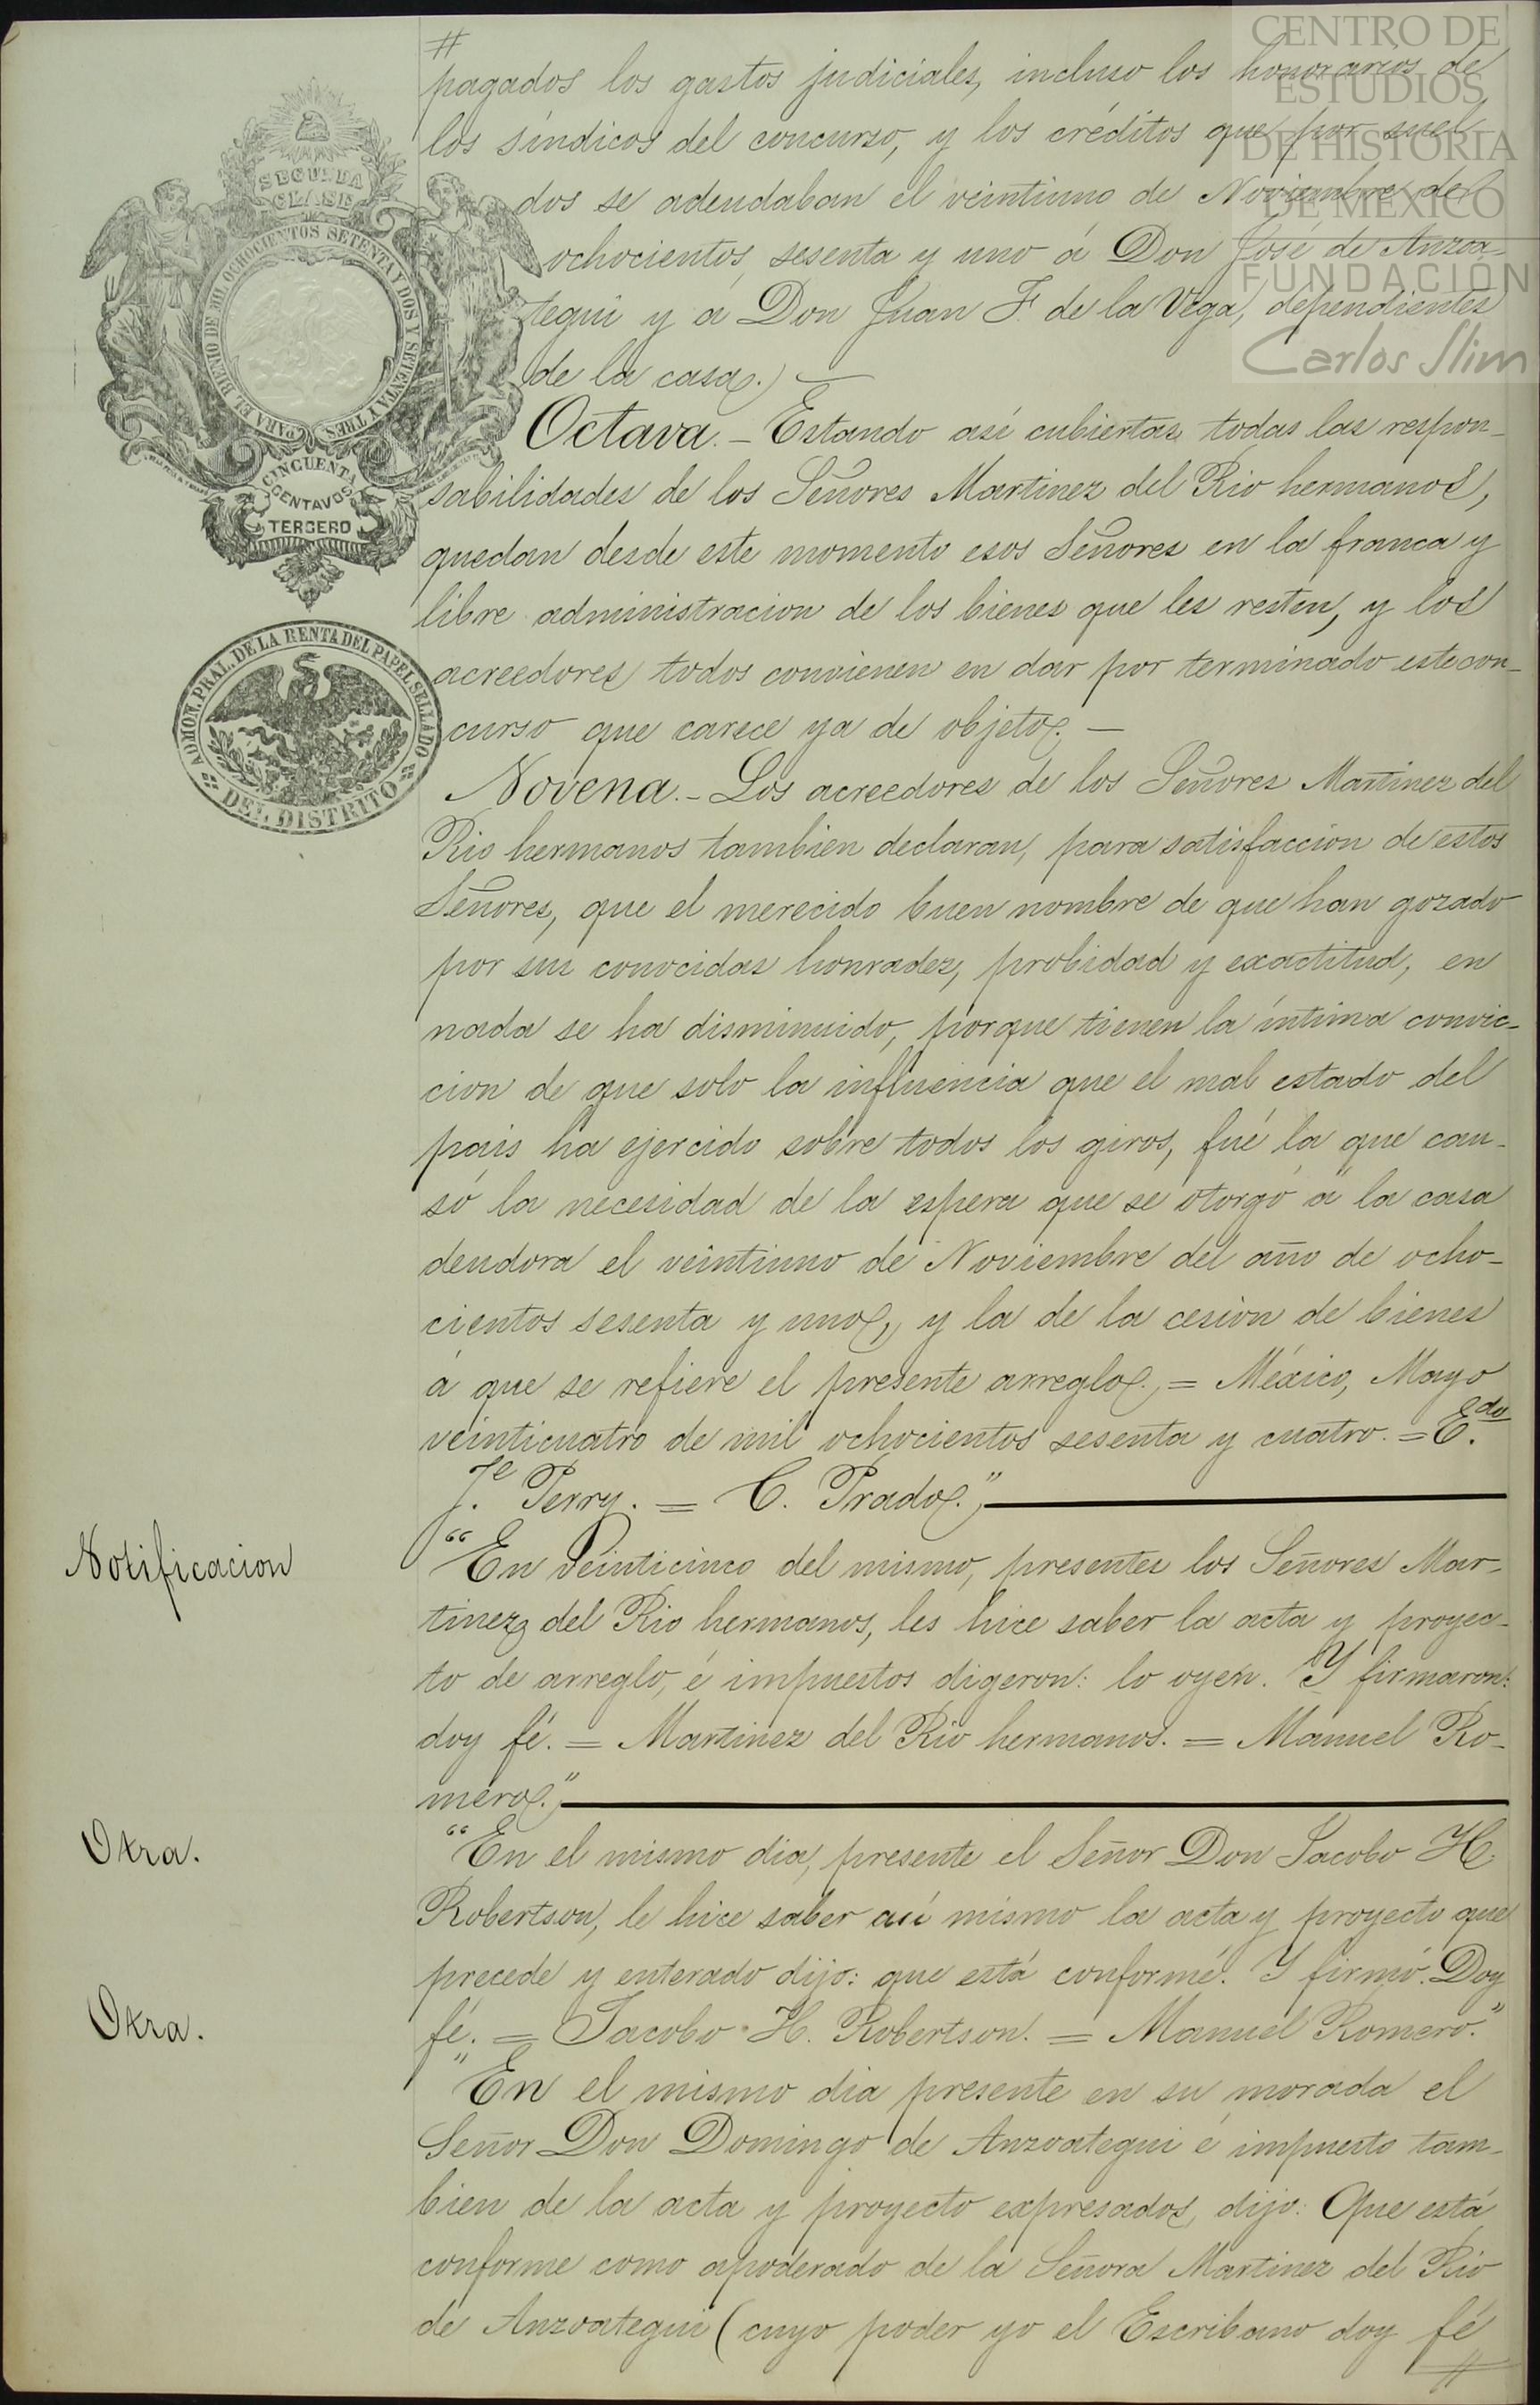 CENTRO DE
ESTUDIOS
DE HISTORIA
DE MÉXICO
FUNDACIÓN
Carlos Slim
SEGUNDA
CLASE
PARA EL BIENIO DE MIL OCHOCIENTOS SETENTA Y DOS Y SETENTA Y TRES
CINCUENTA
CENTAVOS
TERCERO
ADMON. PRAL. DE LA RENTA DEL PAPEL SELLADO
DEL DISTRITO
#
pagados los gastos judiciales, incluso los honorarios de
los síndicos del concurso, y los créditos que por suel-
dos se adeudaban el veintiuno de Noviembre de
ochocientos sesenta y uno á Don José de Anzoa-
tegui y á Don Juan F. de la Vega, dependientes
de la casa.)
Octava. - Estando así cubiertas todas las respon-
sabilidades de los Señores Martinez del Rio hermanos,
quedan desde este momento esos Señores en la franca y
libre administracion de los bienes que les resten, y los
acreedores todos convienen en dar por terminado este con-
curso que carece ya de objeto. —
Novena. - Los acreedores de los Señores Martinez del
Rio hermanos tambien declaran, para satisfaccion de estos
Señores, que el merecido buen nombre de que han gozado
por sus conocidas honradez, probidad y exactitud, en
nada se ha disminuido, porque tienen la íntima convic-
cion de que solo la influencia que el mal estado del
pais ha ejercido sobre todos los giros, fué la que cau-
só la necesidad de la espera que se otorgó á la casa
deudora el veintiuno de Noviembre del año de ocho-
cientos sesenta y uno, y la de la cesion de bienes
á que se refiere el presente arreglo. = México, Mayo
veinticuatro de mil ochocientos sesenta y cuatro. = E.do
J.e Perry. = C. Prado."
Notificacion
"En veinticinco del mismo, presentes los Señores Mar-
tinez del Rio hermanos, les hice saber la acta y proyec-
to de arreglo, é impuestos digeron: lo oyen. Y firmaron:
doy fé. = Martinez del Rio hermanos. = Manuel Ro-
mero."
Otra.
"En el mismo dia, presente el Señor Don Jacobo H.
Robertson, le hice saber así mismo la acta y proyecto que
precede y enterado dijo: que está conforme. Y firmó. Doy
fé. = Jacobo H. Robertson. = Manuel Romero."
Otra.
"En el mismo dia presente en su morada el
Señor Don Domingo de Anzoategui é impuesto tam-
bien de la acta y proyecto expresados, dijo: Que está
conforme como apoderado de la Señora Martinez del Rio
de Anzoategui (cuyo poder yo el Escribano doy fé
#